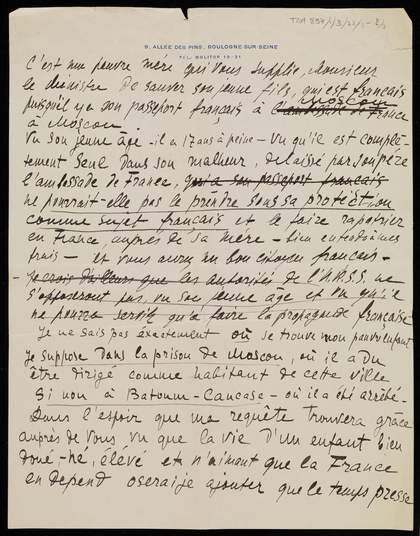 9, ALLÉE DES PINS, BOULOGNE-SUR-SEINE
TÉL. MOLITOR 19-21
C'est une pauvre mère qui Vous supplie, Monsieur
le Ministre de sauver son jeune fils, qui est français
puisqu'il y a son passeport français à l'ambassade de France
Moscou
à Moscou
Vu son jeune âge - il a 17 ans à peine - Vu qu'il est complè-
tement seul dans son malheur, delaissé par son père
l'ambassade de France, qui a son passeport français
ne pourrait-elle pas le prendre sous sa protection
comme sujet français et le faire rapatrier
en France, auprès de sa mère - bien entendu à mes
frais - et vous aurez un bon citoyen français -
- je crois d'ailleurs que les autorités de l'U.R.S.S. ne
s'opposeront pas, vu son jeune age et vu qu'il
ne pourra servir qu'à faire la propagande française
Je ne sais pas exactement où se trouve mon pauvre enfant
je suppose dans la prison de Moscou, où il a du
être dirigé comme habitant de cette ville
Si non à Batoum-Caucase - où il a été arrêté -
Dans l'espoir que ma requête trouvera grâce
auprès de Vous vu que la vie d'un enfant bien
doué, - né, élevé et n'aimant que la France
en dépend oserai je ajouter que le temps presse